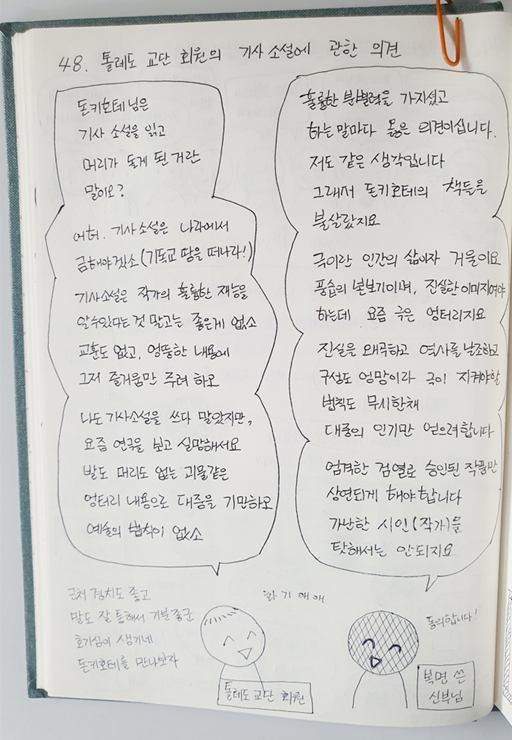 48. 톨레도 교단 회원의 기사 소설에 관한 의견
돈키호테님은
기사 소설을 읽고
머리가 돌게 된 거란
말이오?
어허. 기사소설은 나라에서
금해야겠소 (기독교 땅을 떠나라!)
기사소설은 작가의 훌륭한 재능을
알수있다는 것 말고는 좋은게 없소
교훈도 없고, 엉뚱한 내용에
그저 즐거움만 주려 하오
나도 기사소설을 쓰다 말았지만,
요즘 연극을 보고 실망해서요
발도 머리도 없는 괴물같은
엉터리 내용으로 대중을 기만하오
예술의 법칙이 없소
훌륭한 분별력을 가지셨고
하는 말마다 옳은 의견이십니다.
저도 같은 생각입니다
그래서 돈키호테의 책들을
불살랐지요
극이란 인간의 삶이자 거울이요
풍습의 본보기이며, 진실한 이미지여야
하는데 요즘 극은 엉터리지요
진실을 왜곡하고 역사를 날조하고
구성도 엉망이라 극이 지켜야할
법칙도 무시한채
대중의 인기만 얻으려합니다
엄격한 검열로 승인된 작품만
상연되게 해야 합니다
가난한 시인(작가)을
탓해서는 안되지요
근처 경치도 좋고
말도 잘 통해서 기분 좋군
호기심이 생기네
돈키호테를 만나보자
화기애애
동의합니다!
톨레도 교단 회원
복면 쓴
신부님